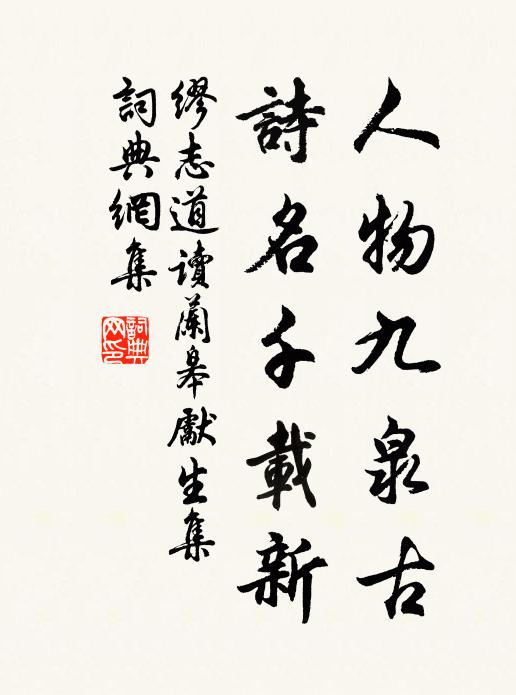 人物九泉古
詩名千載新
繆志道讀蘭皋獻生集
詞典網集
詞典網印